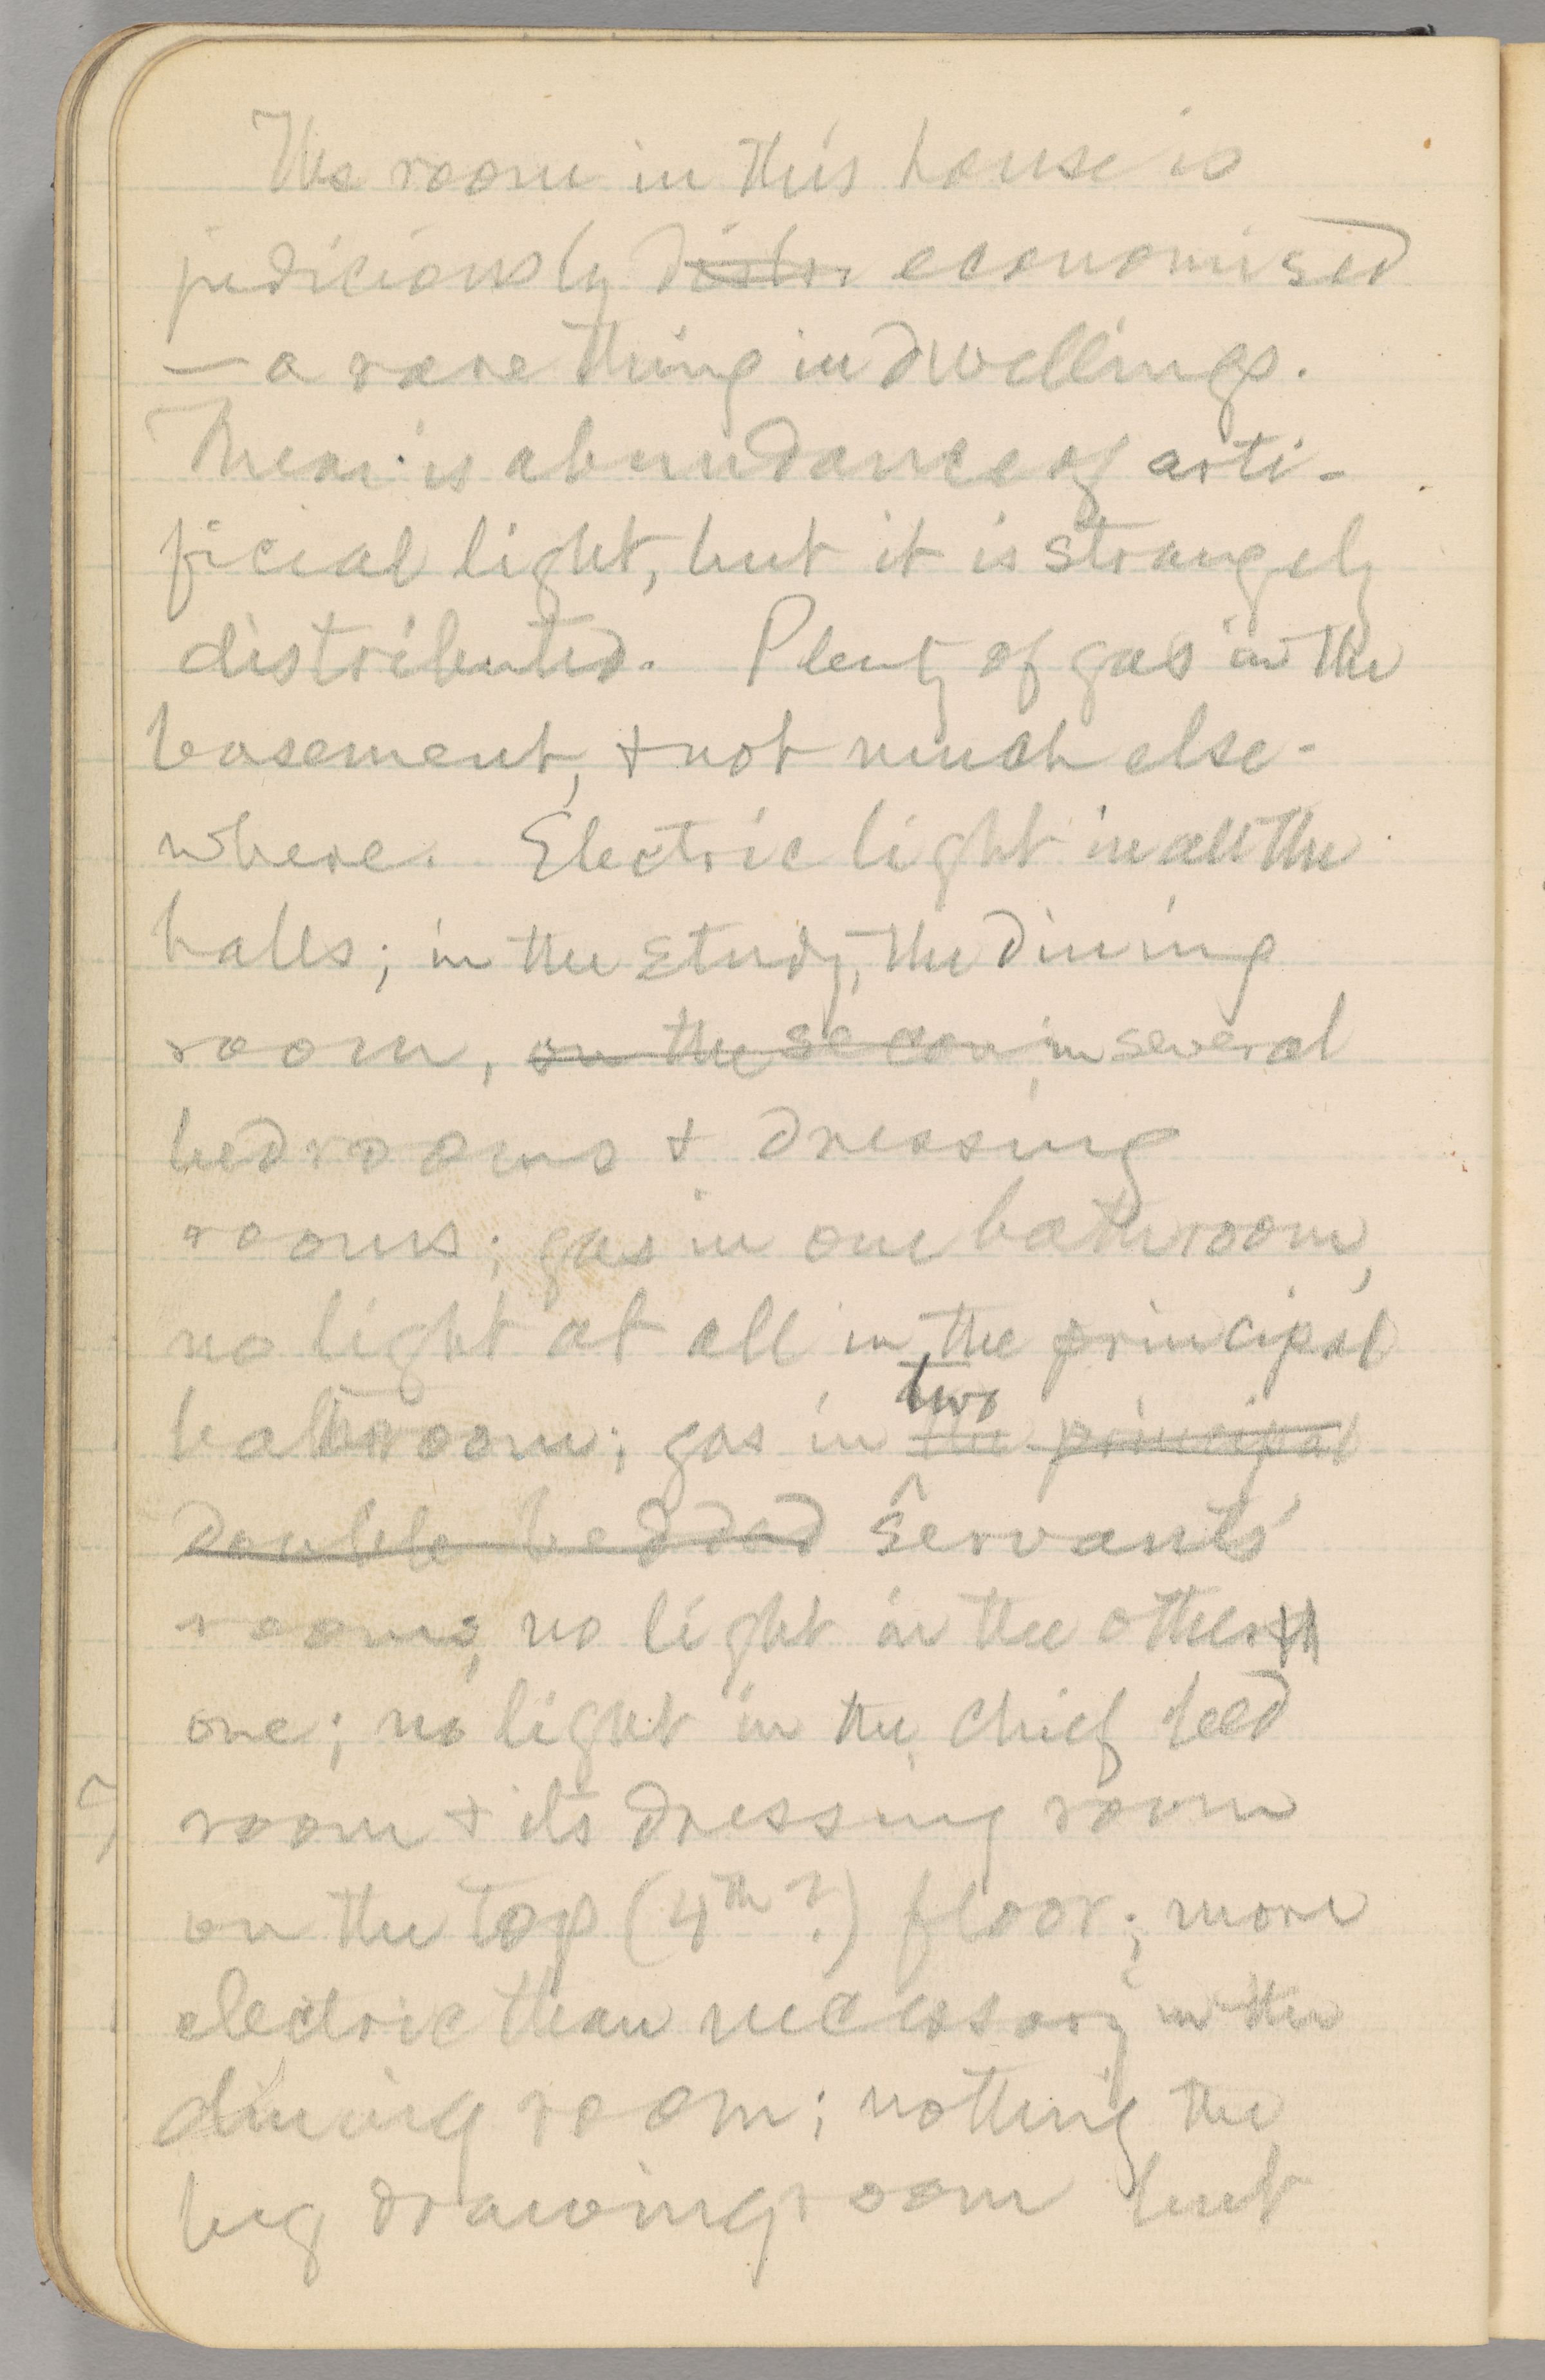 The room in this house is
judiciously distr economised
— a rare thing in dwellings.
There is abundance of arti-
ficial light, but it is strangely
distributed. Plenty of gas in the
basement, & not much else-
where. Electric light in all the
halls; in the study, the dining
room, on the secon in several
bedrooms & dressing
rooms; gas in one bathroom,
no light at all in the principal
bathroom; gas in the principal
two
double bedded servants'
rooms, no light in the other
one; no light in the chief bed
room & its dressing room
on the top (4th?) floor; more
electric than necessary in the
dining room; nothing the
big drawing room but